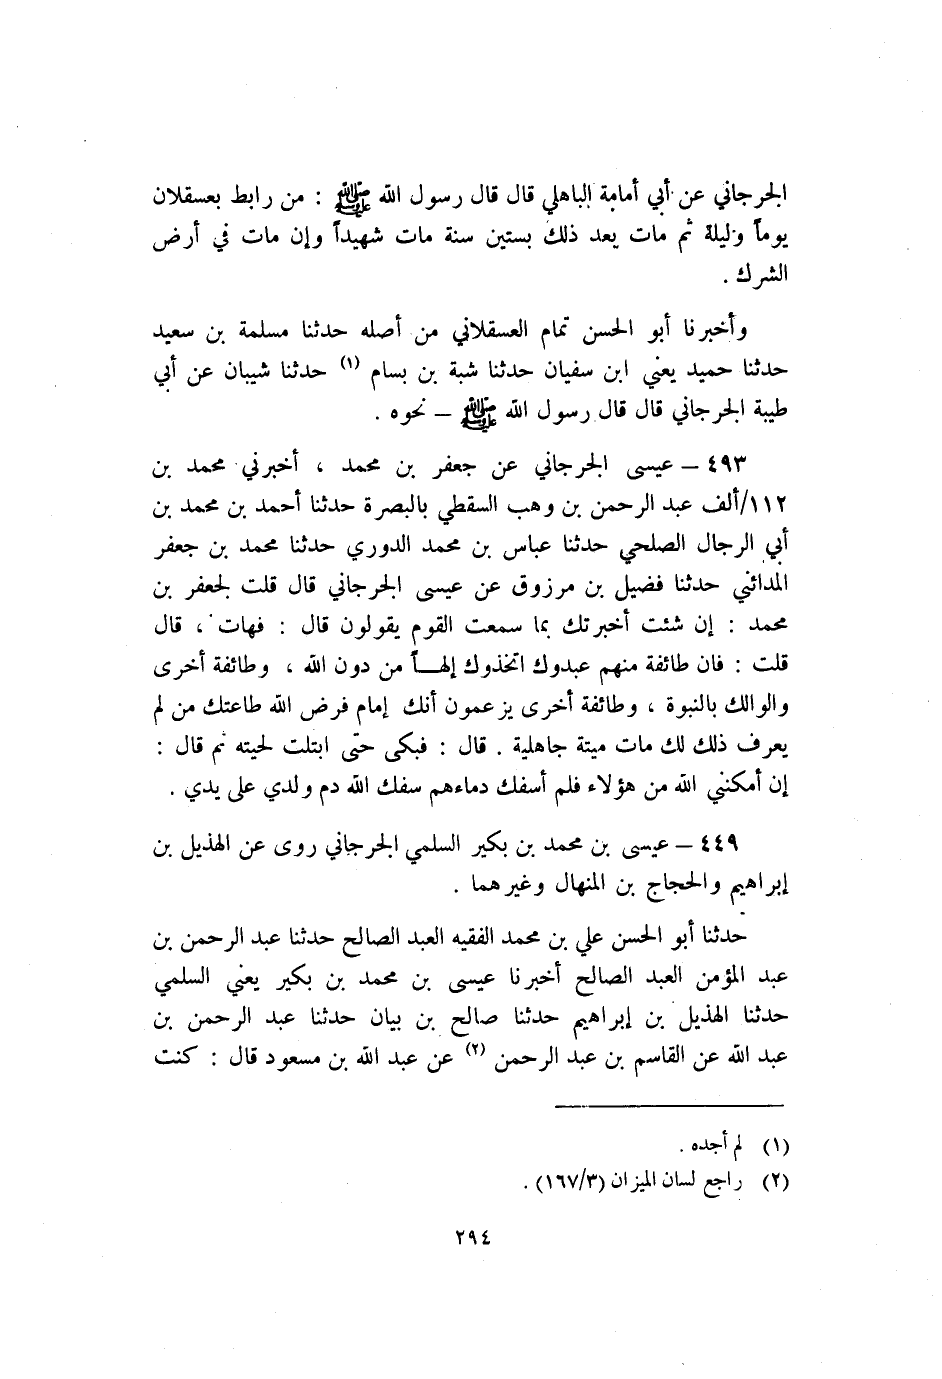 الجرجاني عن أبي أمامة الباهلي قال قال رسول الله ﷺ : من رابط بعسقلان
يوماً وليلة ثم مات بعد ذلك بستين سنة مات شهيداً وإن مات في أرض
الشرك .
وأخبرنا أبو الحسن تمام العسقلاني من أصله حدثنا مسلمة بن سعيد
حدثنا حميد يعني ابن سفيان حدثنا شبة بن بسام (١) حدثنا شيبان عن أبي
طيبة الجرجاني قال قال رسول الله ﷺ – نحوه .
٤٩٣ – عيسى الجرجاني عن جعفر بن محمد ، أخبرني محمد بن
١١٢/ألف عبد الرحمن بن وهب السقطي بالبصرة حدثنا أحمد بن محمد بن
أبي الرجال الصلحي حدثنا عباس بن محمد الدوري حدثنا محمد بن جعفر
المدائني حدثنا فضيل بن مرزوق عن عيسى الجرجاني قال قلت لجعفر بن
محمد : إن شئت أخبرتك بما سمعت القوم يقولون قال : فهات ، قال
قلت : فان طائفة منهم عبدوك اتخذوك إلهاً من دون الله ، وطائفة أخرى
والوالك بالنبوة ، وطائفة أخرى يزعمون أنك إمام فرض الله طاعتك من لم
يعرف ذلك لك مات ميتة جاهلية . قال : فبكى حتى ابتلت لحيته ثم قال :
إن أمكنني الله من هؤلاء فلم أسفك دماءهم سفك الله دم ولدي على يدي .
٤٤٩ – عيسى بن محمد بن بكير السلمي الجرجاني روى عن الهذيل بن
إبراهيم والحجاج بن المنهال وغيرهما .
حدثنا أبو الحسن علي بن محمد الفقيه العبد الصالح حدثنا عبد الرحمن بن
عبد المؤمن العبد الصالح أخبرنا عيسى بن محمد بن بكير يعني السلمي
حدثنا الهذيل بن إبراهيم حدثنا صالح بن بيان حدثنا عبد الرحمن بن
عبد الله عن القاسم بن عبد الرحمن (٢) عن عبد الله بن مسعود قال : كنت
(١) لم أجده .
(٢) راجع لسان الميزان (١٦٧/٣) .
٢٩٤